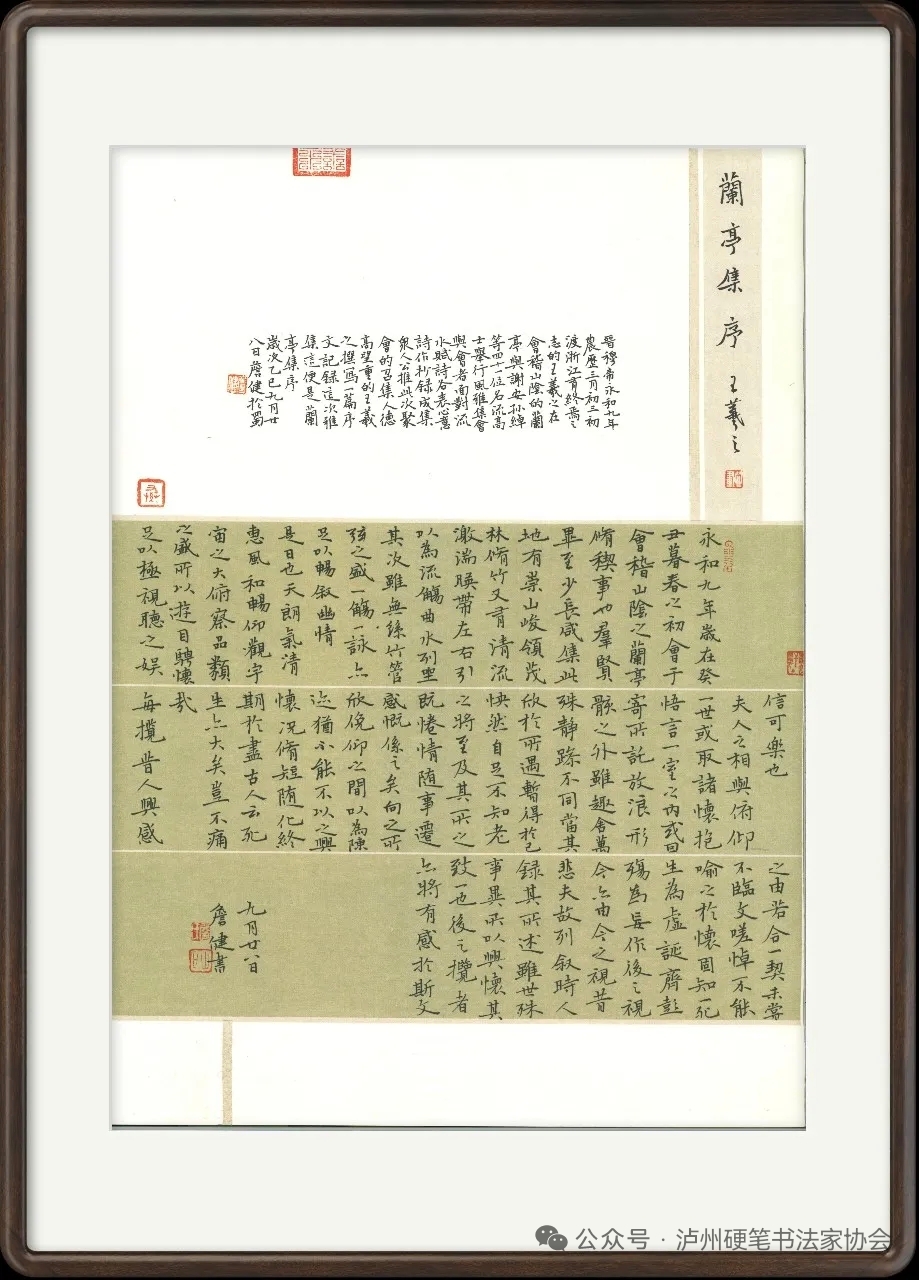 蘭亭集序 王羲之
晉穆帝永和九年
農歷三月初三初
渡浙江有終焉之
志的王羲之在
會稽山陰的蘭
亭與謝安孫綽
等四十一位名流高
士舉行風雅集會
與會者面對流
水賦詩各表心意
詩作抄録成集
衆人公推此次聚
會的召集人德
高望重的王羲
之撰寫一篇序
文記録這次雅
集這便是蘭
亭集序
歲次乙巳九月廿
八日詹健於蜀
永和九年歲在癸
丑暮春之初會于
會稽山陰之蘭亭
脩稧事也羣賢
畢至少長咸集此
地有崇山峻領茂
林脩竹又有清流
激湍暎帶左右引
以為流觴曲水列坐
其次雖無絲竹管
弦之盛一觴一詠亦
足以暢敘幽情
是日也天朗氣清
惠風和暢仰觀宇
宙之大俯察品類
之盛所以遊目騁懷
足以極視聽之娛
信可樂也
夫人之相與俯仰
一世或取諸懷抱
悟言一室之内或因
寄所託放浪形
骸之外雖趣舍萬
殊靜躁不同當其
欣於所遇暫得於己
怏然自足不知老
之將至及其所之
既惓情随事遷
感慨係之矣向之所
欣俛仰之間以為陳
迹猶不能不以之興
懷況脩短随化終
期於盡古人云死
生亦大矣豈不痛
哉
每攬昔人興感
之由若合一契未嘗
不臨文嗟悼不能
喻之於懷固知一死
生為虛誕齊彭
殤為妄作後之視
今亦由今之視昔
悲夫故列敘時人
録其所述雖世殊
事異所以興懷其
致一也後之攬者
亦將有感於斯文
九月廿八日
詹健書
公众号 · 泸州硬笔书法家协会